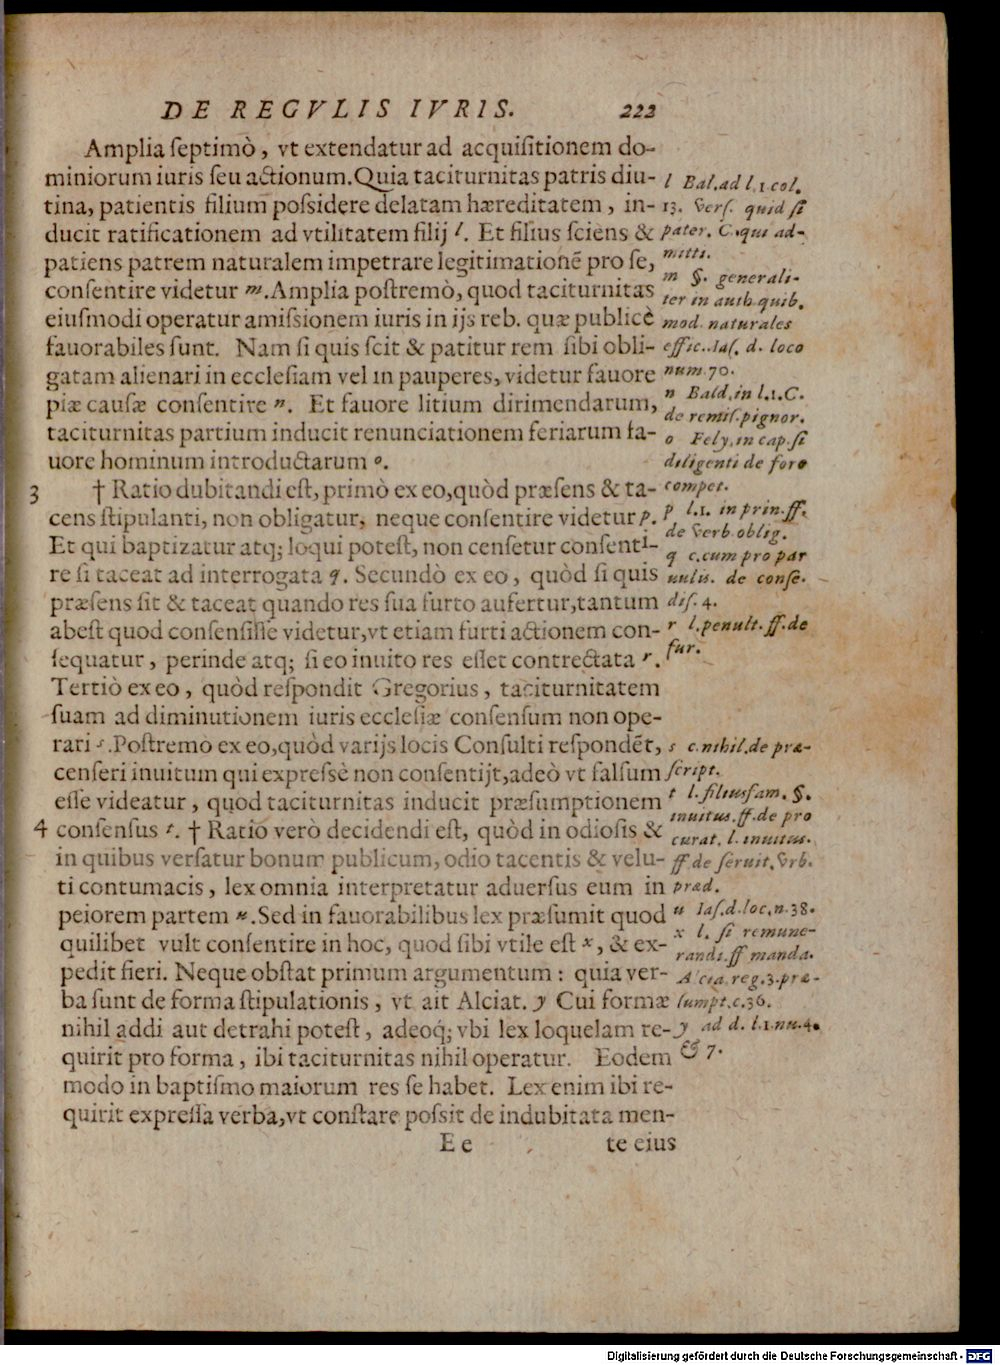 DE REGVLIS IVRIS. 222
Amplia ſeptimò, vt extendatur ad acquiſitionem do-
miniorum iuris ſeu actionum. Quia taciturnitas patris diu-
tina, patientis filium poſsidere delatam hæreditatem, in-
ducit ratificationem ad vtilitatem filij l. Et filius ſciens &
patiens patrem naturalem impetrare legitimationẽ pro ſe,
conſentire videtur m. Amplia poſtremò, quod taciturnitas
eiuſmodi operatur amiſsionem iuris in ijs reb. quæ publicè
fauorabiles ſunt. Nam ſi quis ſcit & patitur rem ſibi obli-
gatam alienari in eccleſiam vel in pauperes, videtur fauore
piæ cauſæ conſentire n. Et fauore litium dirimendarum,
taciturnitas partium inducit renunciationem feriarum fa-
uore hominum introductarum o.
3 † Ratio dubitandi eſt, primò ex eo, quòd præſens & ta-
cens ſtipulanti, non obligatur, neque conſentire videtur p.
Et qui baptizatur atq; loqui poteſt, non cenſetur conſenti-
re ſi taceat ad interrogata q. Secundò ex eo, quòd ſi quis
præſens ſit & taceat quando res ſua furto aufertur, tantum
abeſt quod conſenſiſſe videtur, vt etiam furti actionem con-
ſequatur, perinde atq; ſi eo inuito res eſſet contrectata r.
Tertiò ex eo, quòd reſpondit Gregorius, taciturnitatem
ſuam ad diminutionem iuris eccleſiæ conſenſum non ope-
rari s. Poſtremò ex eo, quòd varijs locis Conſulti reſpondẽt,
cenſeri inuitum qui expreſsè non conſentijt, adeò vt falſum
eſſe videatur, quod taciturnitas inducit præſumptionem
4 conſenſus t. † Ratio verò decidendi eſt, quòd in odioſis &
in quibus verſatur bonum publicum, odio tacentis & velu-
ti contumacis, lex omnia interpretatur aduerſus eum in
peiorem partem u. Sed in fauorabilibus lex præſumit quod
quilibet vult conſentire in hoc, quod ſibi vtile eſt x, & ex-
pedit fieri. Neque obſtat primum argumentum: quia ver-
ba ſunt de forma ſtipulationis, vt ait Alciat. y Cui formæ
nihil addi aut detrahi poteſt, adeoq; vbi lex loquelam re-
quirit pro forma, ibi taciturnitas nihil operatur. Eodem
modo in baptiſmo maiorum res ſe habet. Lex enim ibi re-
quirit expreſſa verba, vt conſtare poſsit de indubitata men-
E e te eius
l Bal. ad l. 1 col.
13. verſ. quid ſi
pater. C. qui ad-
mitti.
m §. generali-
ter in auth. quib.
mod. naturales
effic. Iaſ. d. loco
num. 70.
n Bald. in l. 1. C.
de remiſ. pignor.
o Fely. in cap. ſi
diligenti de foro
compet.
p l. 1. in prin. ff.
de verb. oblig.
q c. cum pro par
uulis. de conſe.
diſ. 4.
r l. penult. ff. de
fur.
s c. nihil. de præ-
ſcript.
t l. filiusfam. §.
inuitus. ff. de pro
curat. l. inuitus.
ff de ſeruit. vrb.
præd.
u Iaſ. d. loc. n. 38.
x l. ſi remune-
randi. ff manda.
Alcia. reg. 3. præ-
ſumpt. c. 36.
y ad d. l. 1. nu. 4.
& 7.
Digitalisierung gefördert durch die Deutsche Forschungsgemeinschaft - DFG